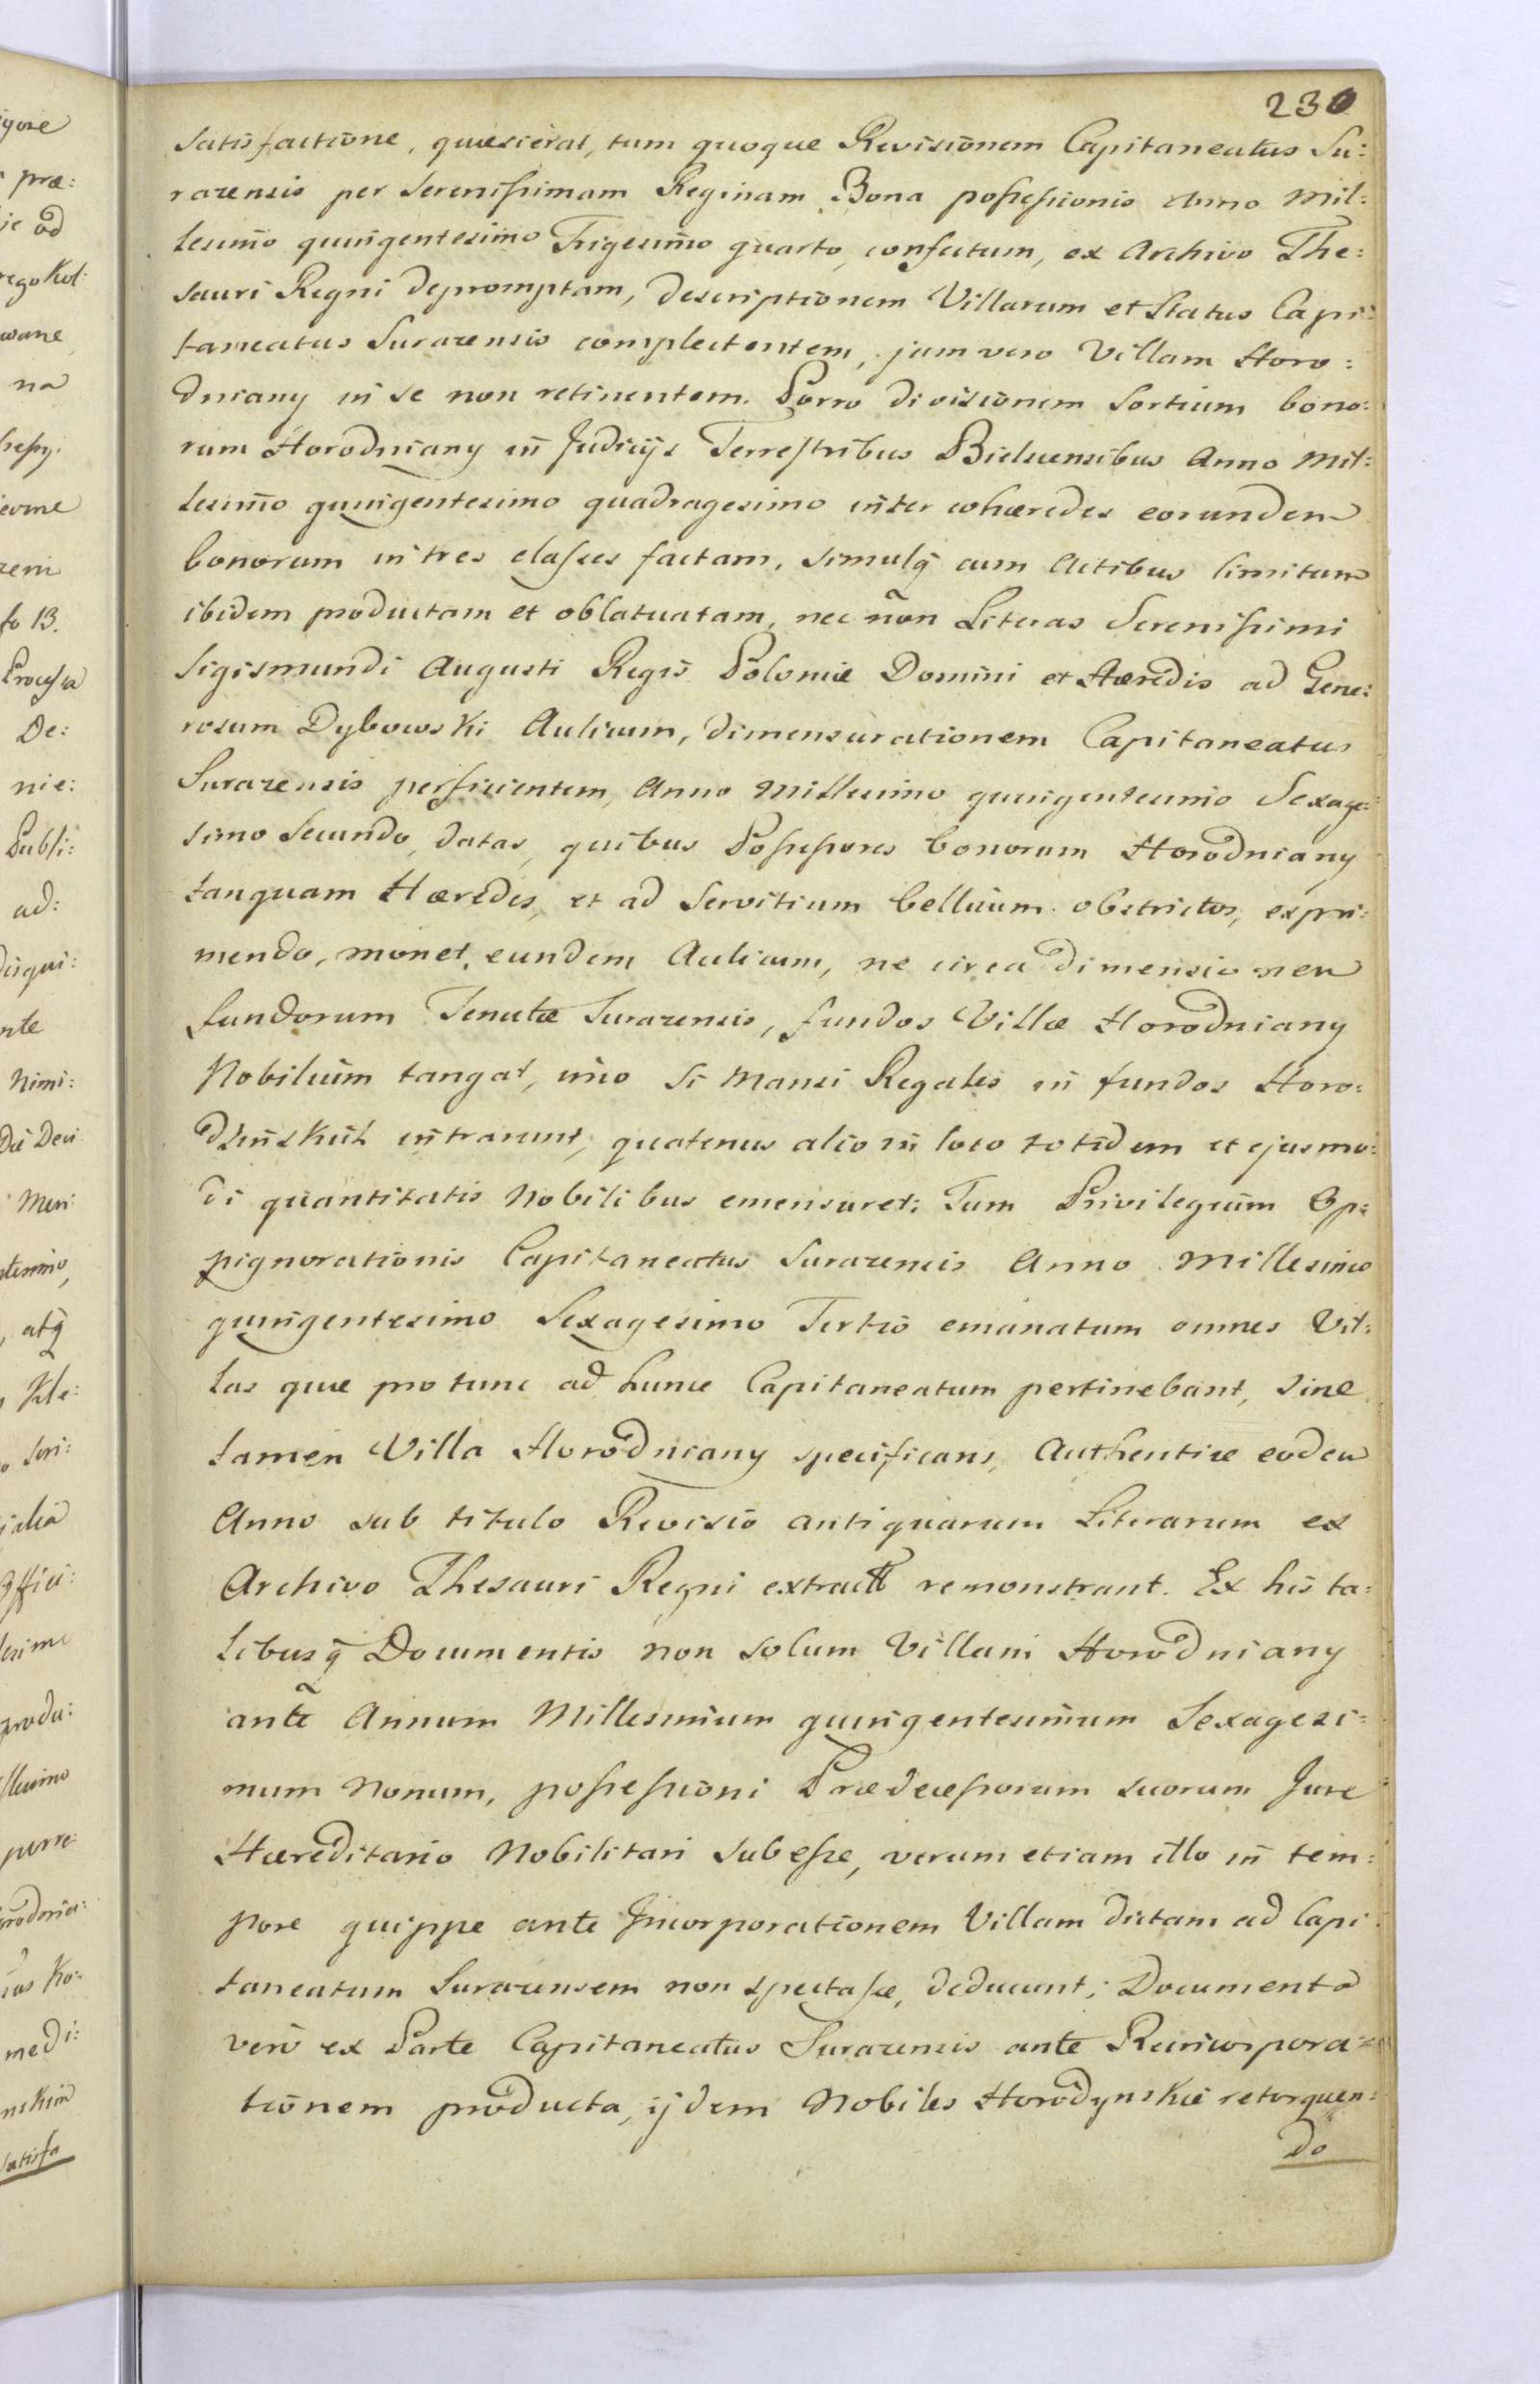 230
satisfactione, quæsierat, tum quoque Revisionem Capitaneatus Su:
razensis per Serenissimam Reginam Bona possessionis Anno Mil:
lesimo quingentesimo Trigesimo quarto, confectam, ex Archivo The:
sauri Regni depromptam, descriptionem Villarum et Status Capi:
taneatus Surazensis complectentem, jam vero Villam Horo:
dniany in se non retinentem. Porro divisionem Sortium bono:
rum Horodniany in Judicijs Terrestribus Bielscensibus Anno Mil:
lesimo quingentesimo quadragesimo inter cohæredes eorundem
bonorum in tres classes factam, simulq̃ cum Actibus limitum
ibidem productam et oblatuatam, nec nõn Literas Serenissimi
Sigismundi Augusti Regis Poloniæ Domini et Hæredis ad Gene:
rosum Dybowski Aulicum, dimensurationem Capitaneatus
Surazensis perficientem, Anno Millesimo quingentesimo Sexage:
simo Secundo, datas, quibus Possessores bonorum Horodniany
tanquam Hæredes, et ad Servitium bellicum obstrictos, expri:
mendo, monet, eundem Aulicum, ne circa dimensionem
fundorum Tenutæ Surazensis, fundos Villæ Horodniany
Nobilium tangat, imo si Mansi Regales in fundos Horo:
dzinskich intrarunt, quatenus alio in loco totidem et ejusmo:
di quantitatis Nobilibus emensuret; Tum Privilegium Op:
pignorationis Capitaneatus Surazensis Anno Millesimo
quingentesimo Sexagesimo Tertio emanatum omnes Vil:
las quæ pro tunc ad hunc Capitaneatum pertinebant, sine
tamen Villa Horodniany specificans, Authentice eodem
Anno sub titulo Revisio antiquarum Literarum ex
Archivo Thesauri Regni remonstrant. Ex his ta:
libusq̃ Documentis non solum Villam Horodniany
ante Annum Millesimum quingentesimum Sexagesi:
mum Nonum, possessioni Prædecessorum suorum Jure
Hæreditario Nobilitari subesse, verum etiam illo in tem:
pore quippe ante Incorporationem Villam dictam ad Capi:
taneatum Surazensem non spectasse, deducunt; Documenta
vero ex Parte Capitaneatus Surazensis ante Reincorpora:
tionem producta, ijdem Nobiles Horodynskie retorquen:
do